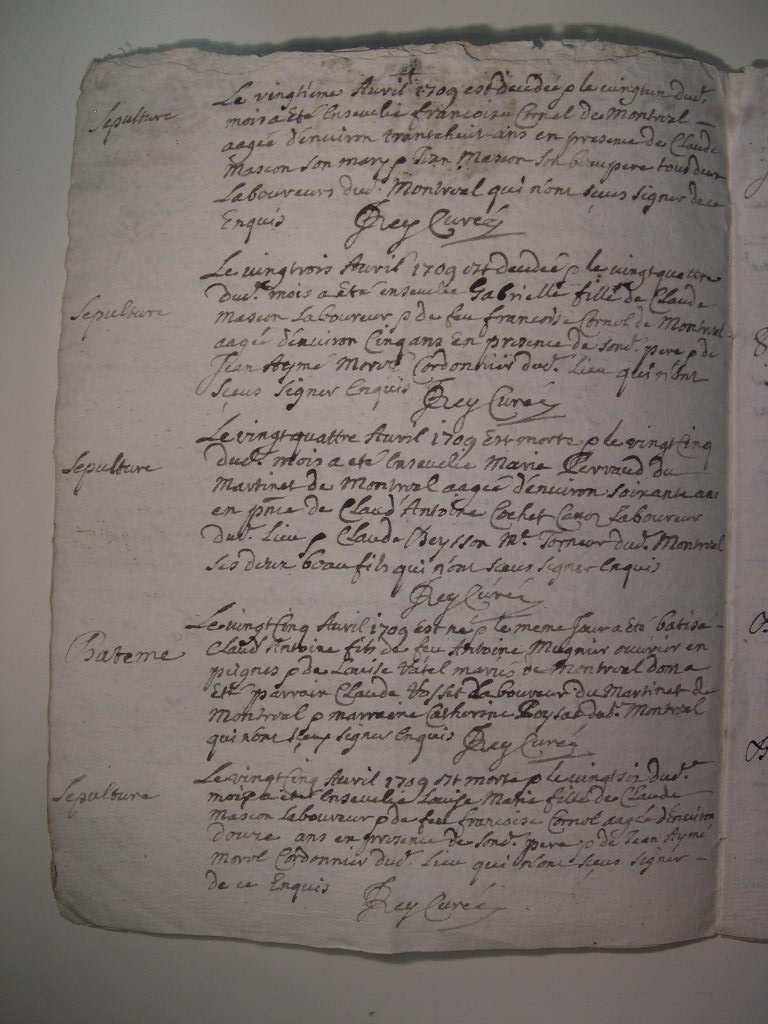 Sepulture
Le vingtieme Avril 1709 est decedée & le vingtun dud.
mois a eté Ensevelie francoise Cornel de Montreal
aagée d'environ trantehuit ans en presence de Claude
Mascon son mary & Jean Mascon son beaupere tous deux
Laboureurs dud. Montreal qui n'ont sceus signer de ce
Enquis Rey Curé
Sepulture
Le vingtrois Avril 1709 est decedée & le vingtquattre
dud. mois a eté ensevelie Gabrielle fille de Claude
Mascon Laboureur & de feu francoise Cornel de Montreal
aagée d'environ Cinq ans en presence de sond. pere & de
Jean Aymé Morel Cordonnier dud. Lieu qui n'ont
sceus signer Enquis Rey Curé
Sepulture
Le vingtquattre Avril 1709 Est morte & le vingtcinq
dud. mois a eté Ensevelie Marie Pervaud du
Martinet de Montreal aagée d'environ soixante ans
en pnce de Claud'Antoine Cochet Laboureur
dud. Lieu & Claude Beysson Me. Torneur dud. Montreal
ses deux beau fils qui n'ont sceus signer Enquis
Rey Curé
Bateme
Le vingtcinq Avril 1709 est né & le meme Jour a eté batisé
Claud'Antoine fils de feu Antoine Mugnier ouvrier en
peignes & de Louise Vatel mariés de Montreal dont a
Eté parrain Claude Vosset Laboureur du Martinet de
Montreal & marraine Catherine Poysat dud. Montreal
qui n'ont sceus signer Enquis Rey Curé
Sepulture
Le vingtcinq Avril 1709 est morte & le vingtsix dud.
mois a eté Ensevelie Louise Marie fille de Claude
Mascon Laboureur & de feu francoise Cornel aagée d'Environ
douze ans en presence de sond. pere & de Jean Aymé
Morel Cordonnier dud. Lieu qui n'ont sceus signer
de ce Enquis Rey Curé